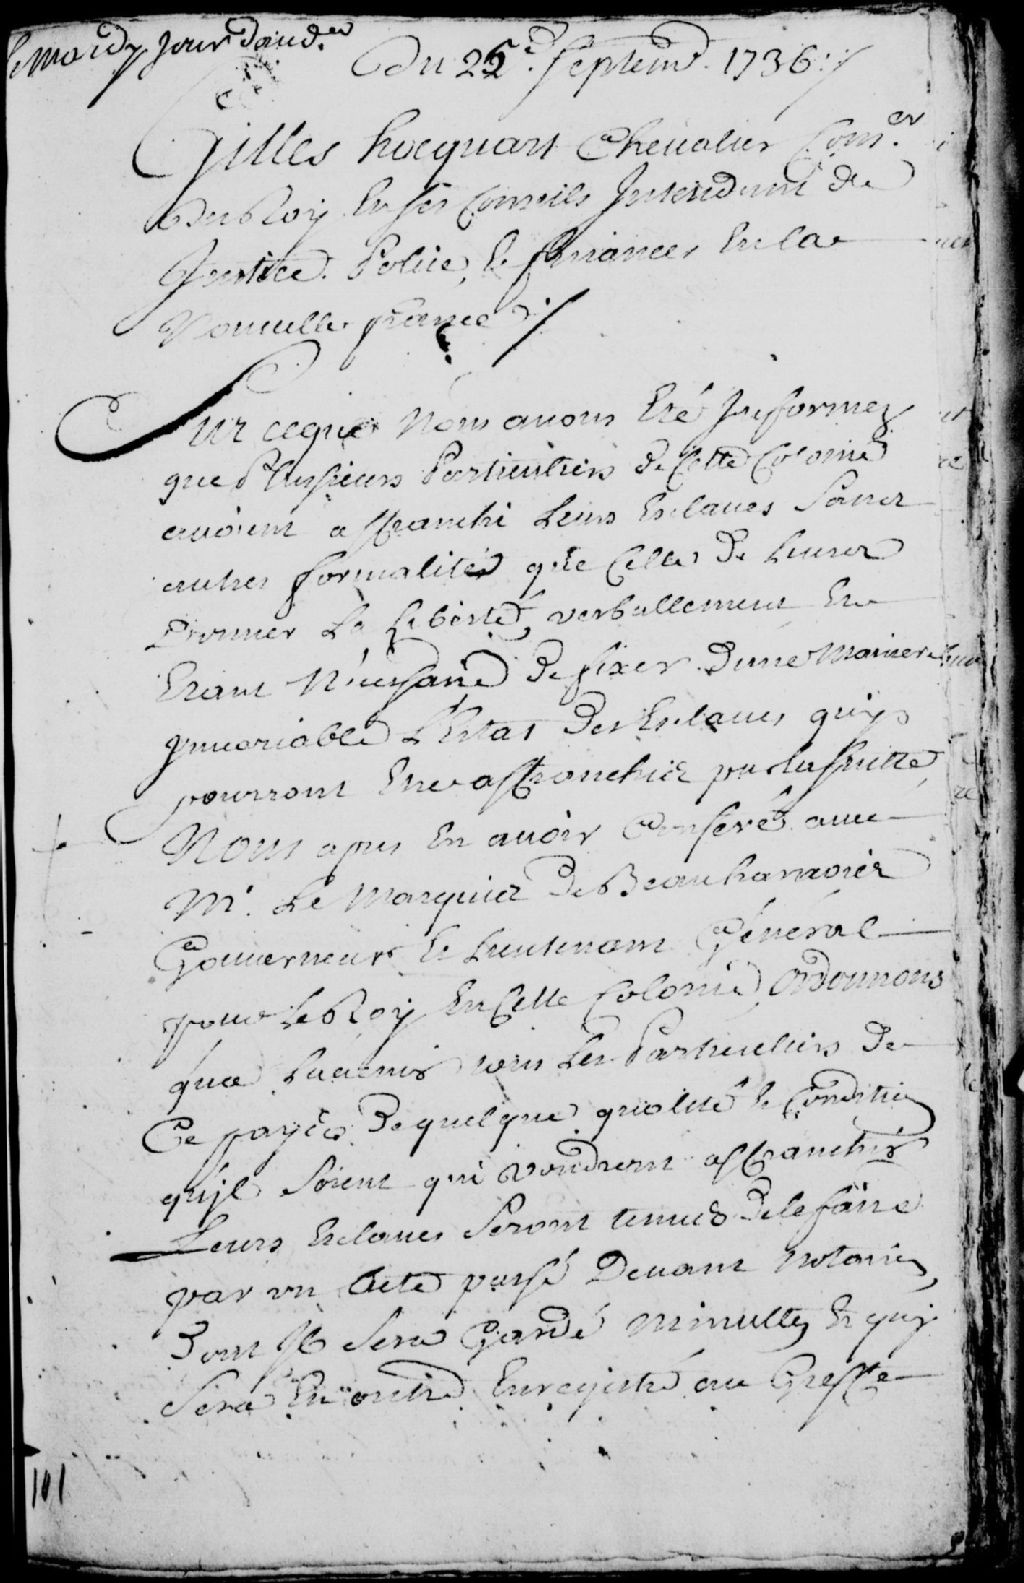 le mardy jour d'aud.ce
Du 25e. Septemb. 1736 :/
Gilles hocquart Chevalier Cons.er
Du Roy En ses Conseils Intendant de
Justice. Police, & finances En la
Nouvelle france :/
Sur ceque Nous avons Eté Informez
que Plusieurs Particuliers de Cette Colonie
avoient affranchi Leurs Esclaves Sans
autres formalités que Celle De Leurs
Donner La Liberté verballement, Et
Etant Necessaire De fixer D'une Maniere
invariable L'Etat Des Esclaves quy
pourront Etre affranchis par la suitte,
Nous apres En avoir Conferé avec
Mr. Le Marquis De Beauharnois
Gouverneur & Lieutenant Général
pour Le Roy En Cette Colonie, Ordonnons
qu'a L'avenir tous Les Particuliers De
Ce pays De quelque qualité & Condition
qu'jls Soient qui voudront affranchir
Leurs Esclaves Seront tenus De le faire
par un Acte passé Devant Notaires,
Dont Il Sera Gardé minutte, Et quy
Sera En outre Enregistré au Greffe
101